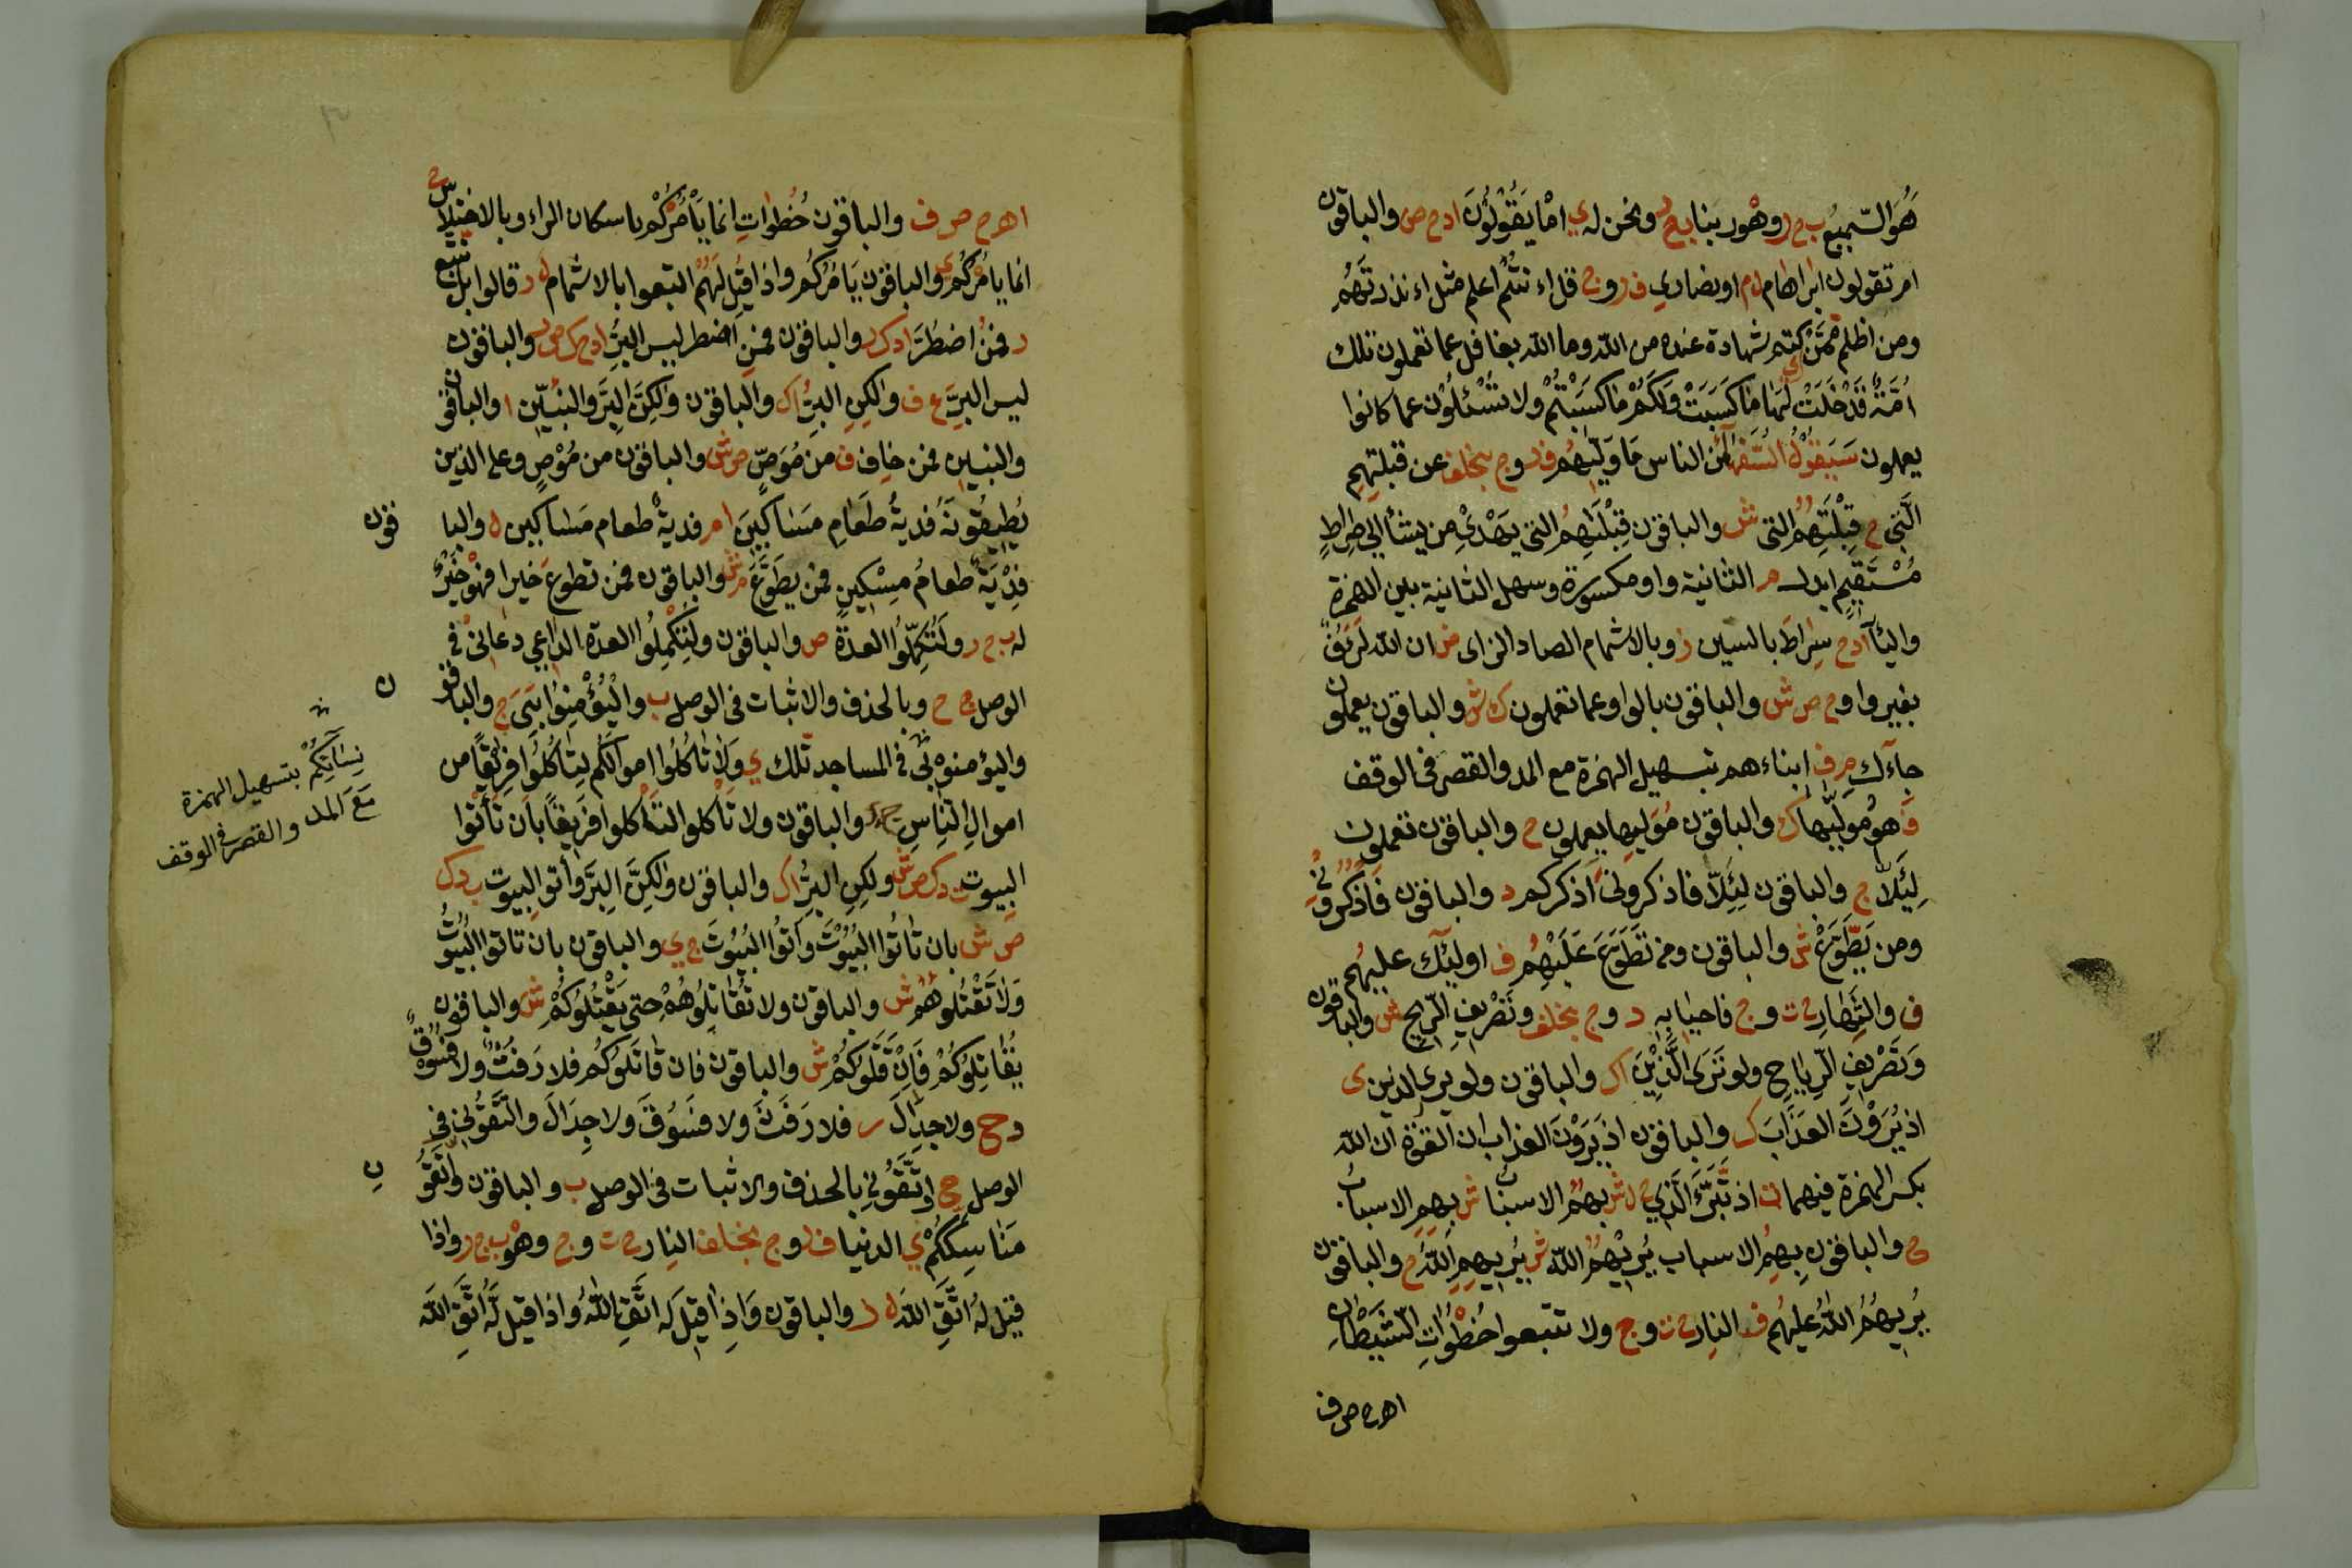 هُوَ السّمِيعُ ب ج ر وهْو ربنا ب ع ر ونحن له ي امْ يَقُوْلُوْنَ ا د ح ص والباقون
ام تقولون ابراهام ل م او نصاري ف ر وج قل اء نتُمْ اعلم مثل اء نذرتَهُم
ومن اظلم مِمَّنْ كتم شهادة عنده من الله وما الله بغافل عما تعملون تلك
اُمَّةٌ قَدْخَلَتْ لَهَا مَا كَسَبَتْ وَلَكُمْ مَا كَسَبْتُمْ ولا تُسْئَلُوْن عما كانوا
يعملون سَيَقُوْلُ السُّفَهَآءُ من الناس مَا وَلّٰيهُم ف ر وج بخلف عن قبلتِهِمِ
الَّتِي ح قِبْلَتِهُمُ التي ش والباقون قِبْلَتِهِمُ التي يَهْدِيْ من يشآء الي صِراطٍ
مُسْتَقِيمٍ ابدل م الثانية واو مكسورة وسهل الثانية بين الهمزة
واليآ ا د ح سِراطَ بالسين ز وبالاشمام الصاد الزاى ض ان الله لَرَؤُفٌ
بغير واو ح ص ش والباقون بالواو عما تعملون ك ش والباقون يعملون
جاءك م ف ابناءهم بتسهيل الهمزة مع المد والقصر في الوقف
ف هو مُوَلّٰيهَا ك والباقون مُوَلِيها يعملون ح والباقون تعملون
لِيَلاَّ ج والباقون لِئَلاَّ فاذكرونيَ اذكركم د والباقون فَاذْكُرُوْنِي
ومن يَطَّوَّعْ ش والباقون ومن تَطَوَّعَ عَلَيْهُم ف اوليٓك عليهُم
ف والنَّهَارِ ح ت وج فاحيا به د وج بخلف وتَصْرِيفِ الرِّيحِ ش والباقون
وَتَصْرِيفِ الرِّيَاحِ ولو تَرَى الَّذِيْنَ ا ك والباقون ولو يرى الذين ى
اذ يُرَوْنَ العَذَابَ ك والباقون اذ يَرَوْنَ العذاب ان القوة ان الله
بكسر الهمزة فيهما ث اذ تَّبَرَّءَ الَّذِي ح ل ش بِهُمُ الاسباب ش بِهِمِ الاسباب
ح والباقون بِهِمُ الاسباب يُرِيْهُمُ الله ش يُرِيهِمِ اللهُ ح والباقون
يُرِيهِمُ اللهُ عليهُم ف النارِ ح ت وج ولا تتبعوا خُطْوَاتِ الشَّيْطَانِ
ا ه ح ص ف
ا ه ح ص ف والباقون خُطُوَاتِ انما يَأْمُرْكُمْ باسكان الراء وبالاختلاس ح
انما يامُرُكُم ي والباقون يَامُرُكُم واذا قِيْلَ لَهُمُ اتبعوا بالاشمام ل ر قالوا بل نتبع
ر فمَنُ اضْطُرَّ ا د ك ر والباقون فمَنِ اضطر ليس البِرُّ ا د ح ك ص ر والباقون
ليس البِرَّ ع ف ولٰكِنِ البِرُّ ا ك والباقون ولٰكِنَّ البِرَّ والنبيّٖنَ ا والباقون
والنبيين فمن خاف ف من مُوَصٍّ ص ش والباقون من مُوْصٍ وعلى الذين
يُطِيقُونَهُ فديةُ طَعَامِ مَسَاكِيْنَ ا م فديةٌ طعام مَسَاكِين ل والبا
قون
فِدْيَةٌ طعامُ مِسْكِينٍ فمن يطَّوَّعْ ش والباقون فمن تطوعَ خيرا فهُوَ خَيْرٌ
له ب ج ر ولِتُكَمِّلُوا العدّةَ ص والباقون ولِتُكْمِلُوا العدة الداعي دعانيْ في
الوصل ج ح وبالحذف والاثبات في الوصل ب والْيُؤْمِنُوا بِيَ ج والباقو
ن
واليؤمنوْ بيْ في المساجد تلك ي وَلاَ تَاكُلُوا اموالكُم لِتَاكُلُوا فرِيْقًا من
اموالِ النّاسِ ج والباقون ولا تَأْكلوا لتأكلوا فَرِيقًا بان تَأْتُوا
نِسَآئِكُمْ بتسهيل الهمزة
مَعَ المد والقصر في الوقف
البيوت ب د ك ص ش ولكِنِ البِرُّ ا ك والباقون ولٰكِنَّ البِرَّ وأتوا البِيوت ب د ك
ص ش بان تَاتُوا البُيُوْتَ وَأتُوا البُيُوتَ ج ي والباقون بان تاتوا البُيُوتَ
وَلاَ تَقْتُلُوهُمْ ش والباقون ولا تُقَاتِلُوهُمْ حتى يَقْتُلُوكُمْ ش والباقون
يُقَاتِلوُكُمْ فَاِنْ قَتَلُوكُمْ ش والباقون فان قَاتَلوُكُم فلا رَفَثٌ ولا فُسُوْقٌ
د ح ولا جِدَالَ ر فلا رَفَثَ ولا فُسُوْقَ ولا جِدَالَ واتَّقُونِي في
الوصل ح اتَّقُونِي بالحذف والاثبات في الوصل ب والباقون واتَّقُو
نِ
مَنَاسِكَكُمْ ي الدنيا ف ر وج بخلف النارِ ح ت وج وهْو ب ج ر واذا
قِيْلَ لهُ اتَّقِ اللهَ ل ر والباقون وَاِذَا قِيلَ لَه اتَّقِ اللهَ واذا قيل لَّهُ اتَّقِ الله